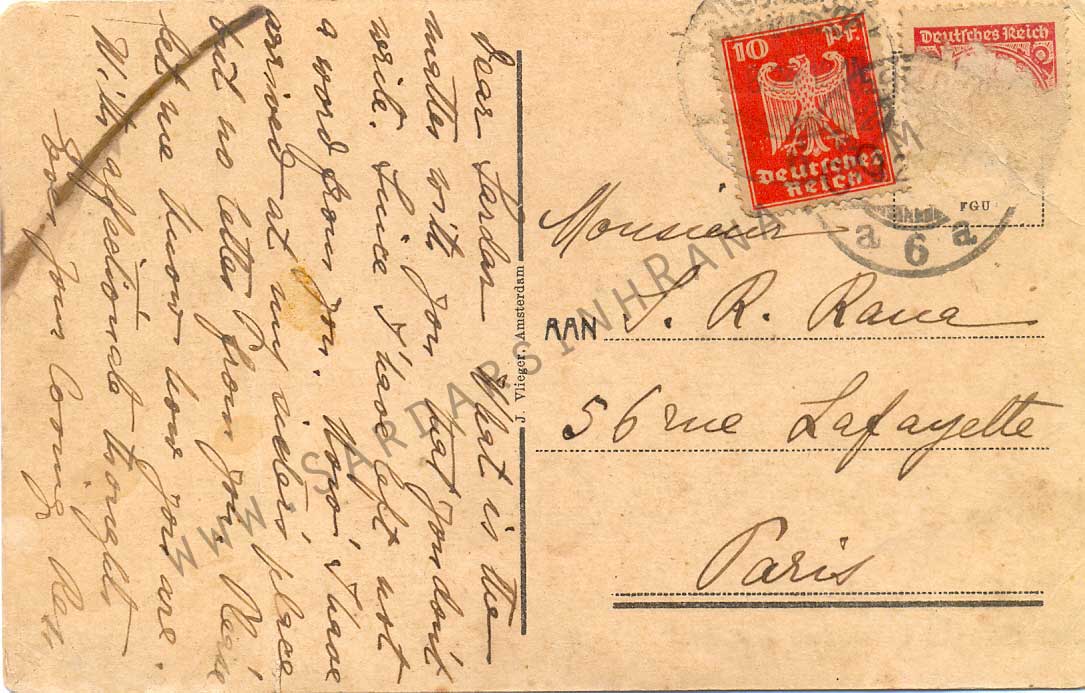 Dear Sardar What is the
matter with you that you don't
write. Since I have left not
a word from you. Now I have
arrived at my sister's place
but no letter from you. Please
let me know how you are.
With affectionate thought
Ever your loving
10 Pf.
Deutsches
Reich
Deutsches Reich
FGU
a 6 a
Monsieur
AAN S. R. Rana
56 rue Lafayette
Paris
J. Vlieger, Amsterdam
WWW.SARDARSINHRANA